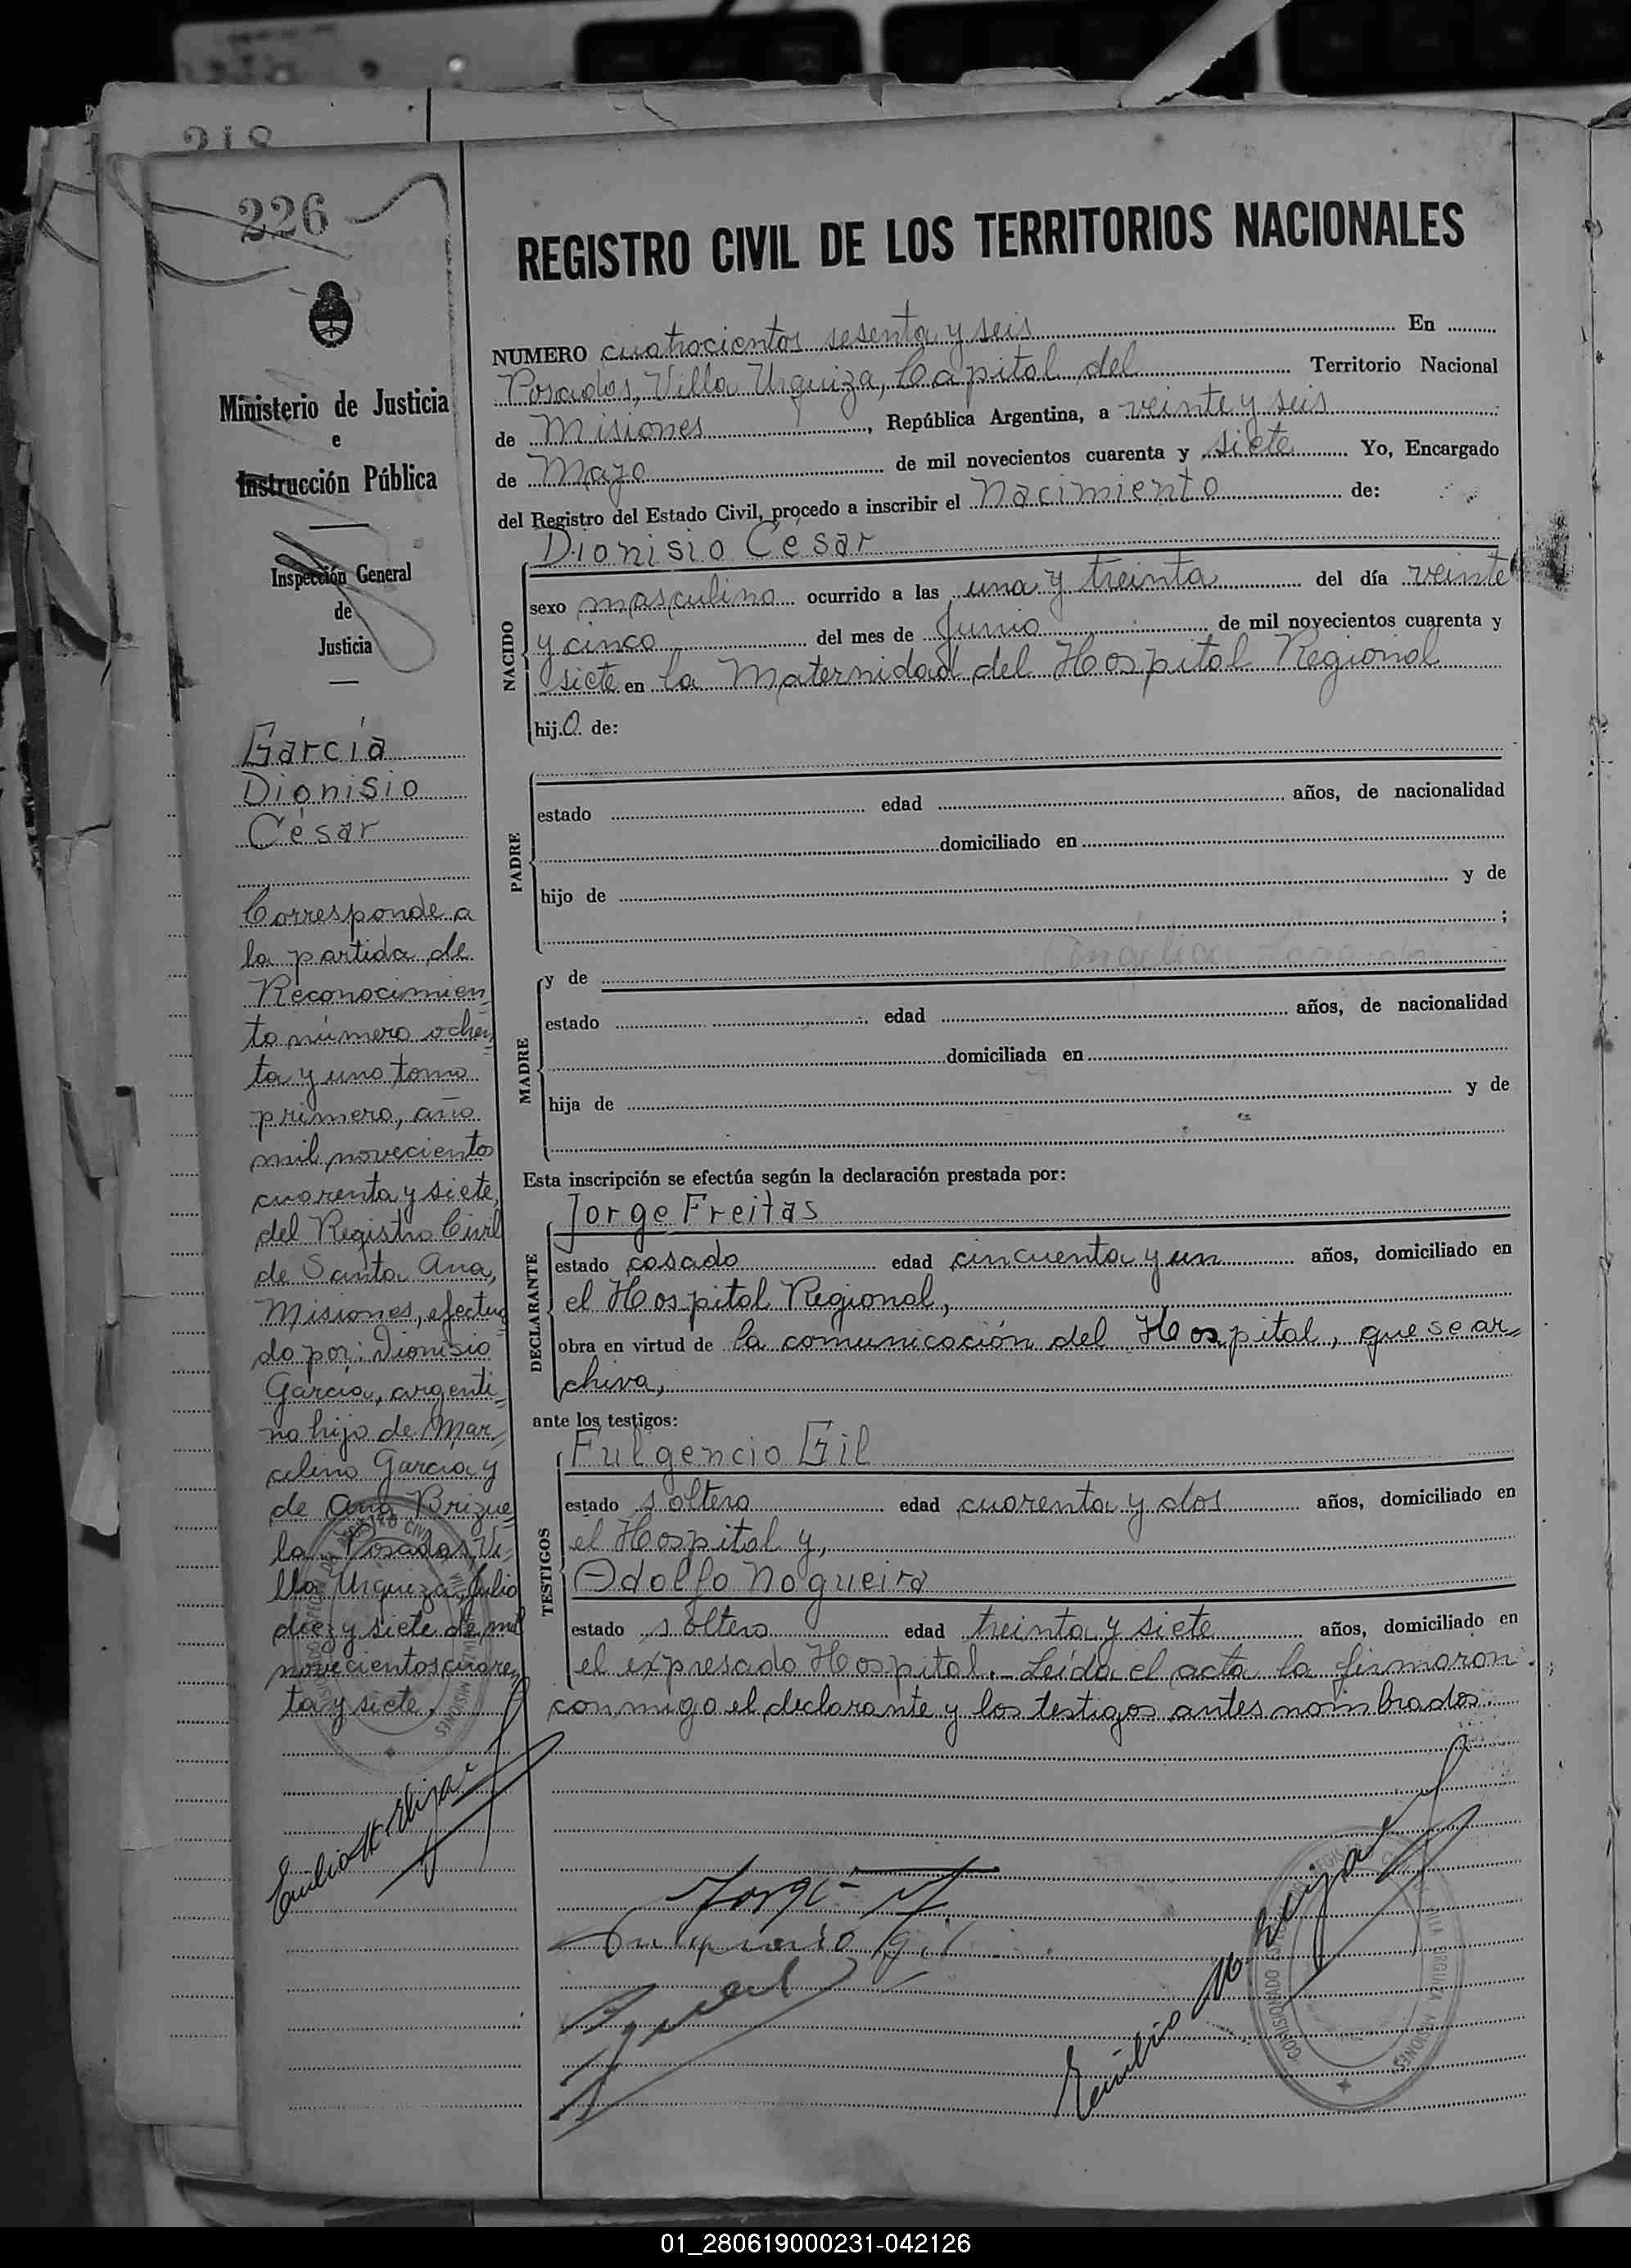 218
226
Ministerio de Justicia
e
Instrucción Pública
Inspección General
de
Justicia
García
Dionisio
César
Corresponde a
la partida de
Reconocimien
to número ochen
ta y uno, tomo
primero, año
mil noveciento
cuarenta y siete,
del Registro Civil
de Santa Ana,
Misiones, efectua
do por: Dionisio
García, argenti
no hijo de Mar
celino García y
de Ana Brizue
la. Posadas, Vi
lla Urquiza, Julio
diez y siete de mil
novecientos cuaren
ta y siete.
REGISTRO CIVIL DE LOS TERRITORIOS NACIONALES
NUMERO cuatrocientos sesenta y seis En
Posadas, Villa Urquiza, Capital del Territorio Nacional
de Misiones, República Argentina, a veinte y seis
de Mayo de mil novecientos cuarenta y siete Yo, Encargado
del Registro del Estado Civil, procedo a inscribir el Nacimiento de:
Dionisio César
NACIDO
sexo masculino ocurrido a las una y treinta del día veinte
y cinco del mes de Junio de mil novecientos cuarenta y
siete en la Maternidad del Hospital Regional
hijo de:
PADRE
estado edad años, de nacionalidad
domiciliado en
hijo de y de
;
MADRE
y de
estado edad años, de nacionalidad
domiciliada en
hija de y de
Esta inscripción se efectúa según la declaración prestada por:
DECLARANTE
Jorge Freitas
estado casado edad cincuenta y un años, domiciliado en
el Hospital Regional,
obra en virtud de la comunicación del Hospital, que se ar
chiva,
ante los testigos:
TESTIGOS
Fulgencio Gil
estado soltero edad cuarenta y dos años, domiciliado en
el Hospital y,
Adolfo Nogueira
estado soltero edad treinta y siete años, domiciliado en
el expresado Hospital. Leída el acta la firmaron
conmigo el declarante y los testigos antes nombrados.
01_280619000231-042126